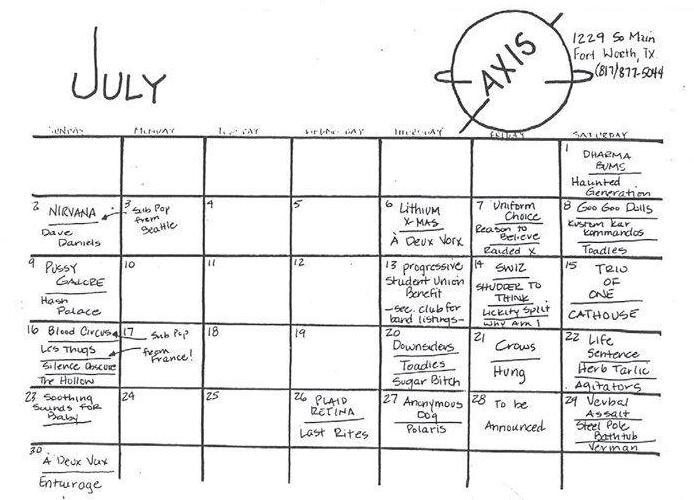 JULY
AXIS
1229 So Main
Fort Worth, TX
(817)877-5044
SUNDAY MONDAY TUESDAY WEDNESDAY THURSDAY FRIDAY SATURDAY
1 DHARMA
BUMS
Haunted
Generation
2 NIRVANA
Dave
Daniels
3 Sub Pop
from
Seattle
4
5
6 Lithium
X-MAS
À Deux Vorx
7 Uniform
Choice
Reason to
Believe
Raided X
8 Goo Goo Dolls
Kustom Kar
Kommandos
Toadies
9 PUSSY
GALORE
Hash
Palace
10
11
12
13 progressive
Student Union
Benefit
-see club for
band listings-
14 SWIZ
SHUDDER TO
THINK
Lickity Split
Why Am I
15 TRIO
OF
ONE
CATHOUSE
16 Blood Circus
Les Thugs
Silence Obscure
The Hollow
17 Sub Pop
from
France!
18
19
20
Downsiders
Toadies
Sugar Bitch
21
Crows
Hung
22 Life
Sentence
Herb Tarlic
Agitators
23 Soothing
Sounds for
Baby
24
25
26 PLAID
RETINA
Last Rites
27 Anonymous
Dog
Polaris
28 To be
Announced
29 Verbal
Assalt
Steel Pole
Bathtub
Verman
30
À Deux Vux
Entouroge